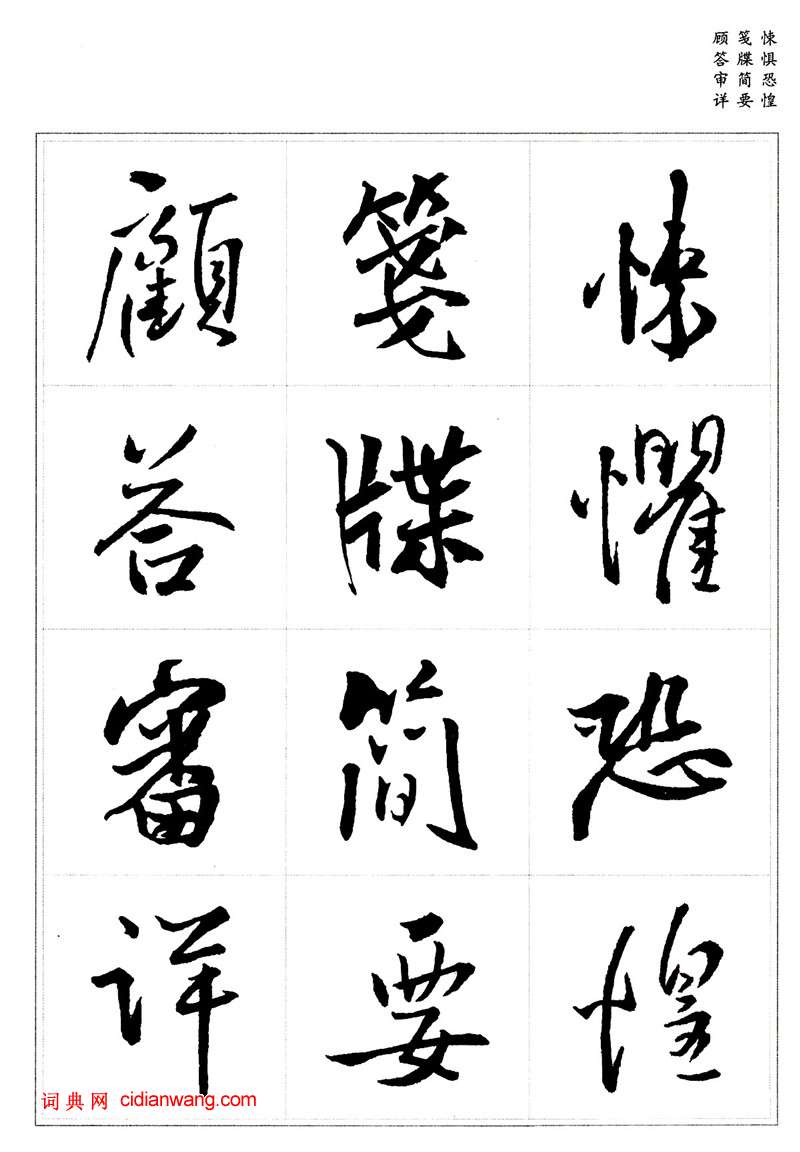 悚惧恐惶
笺牒简要
顾答审详
悚懼恐惶
箋牒简要
顧答審详
词典网 cidianwang.com